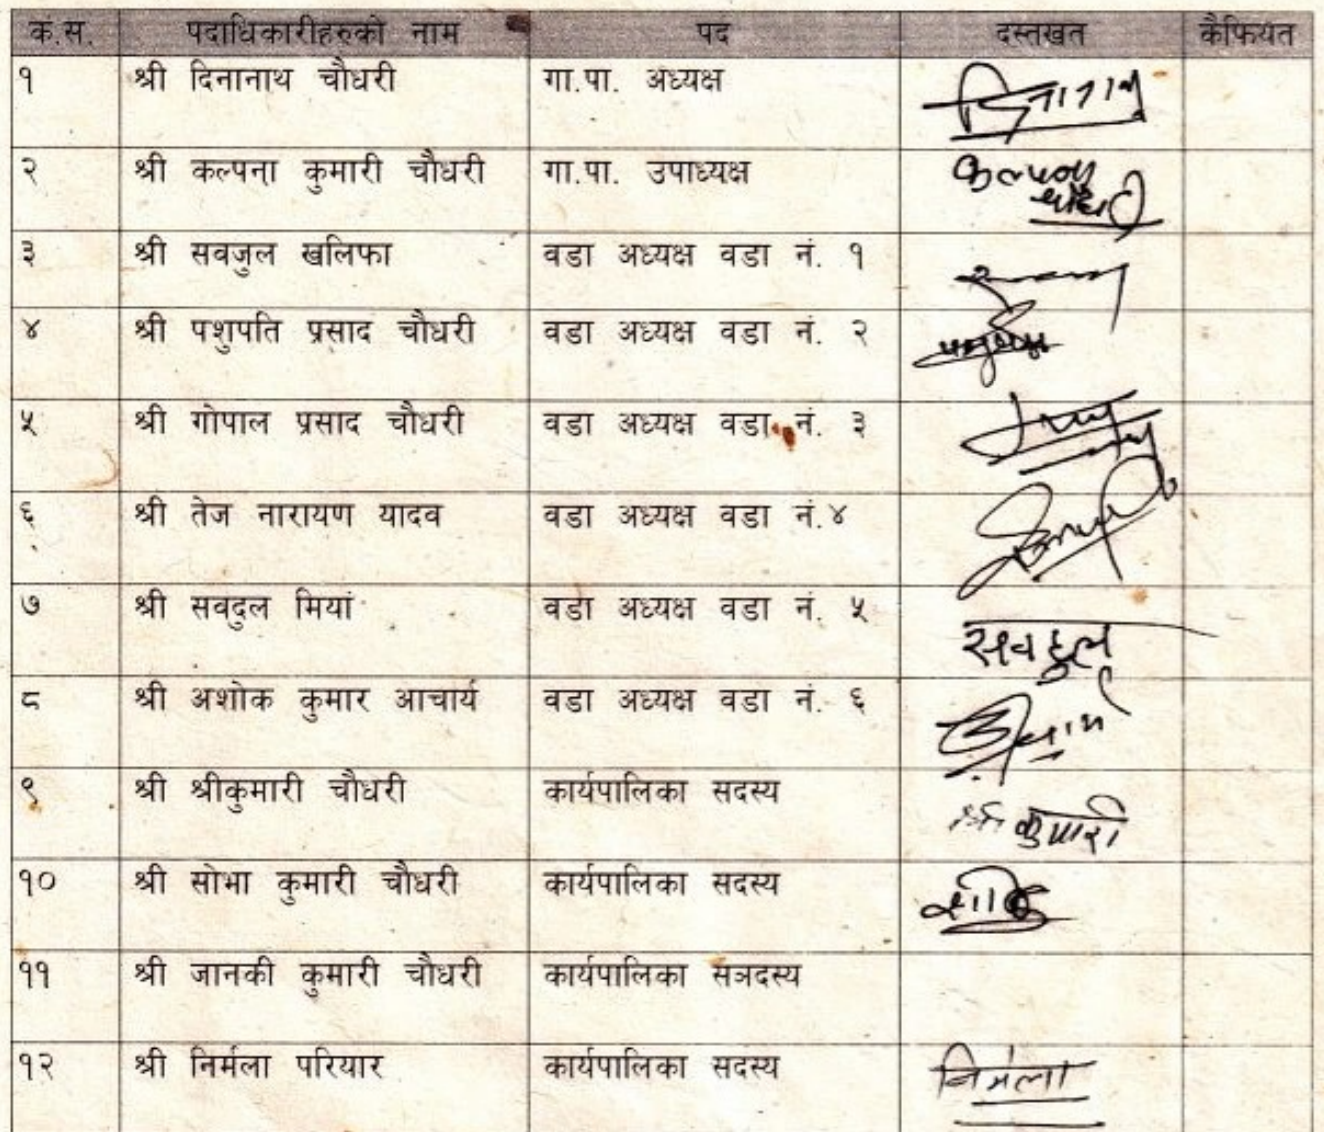 क.स. पदाधिकारीहरुको नाम पद दस्तखत कैफियत
१ श्री दिनानाथ चौधरी गा.पा. अध्यक्ष
२ श्री कल्पना कुमारी चौधरी गा.पा. उपाध्यक्ष कल्पना चौधरी
३ श्री सवजुल खलिफा वडा अध्यक्ष वडा नं. १
४ श्री पशुपति प्रसाद चौधरी वडा अध्यक्ष वडा नं. २
५ श्री गोपाल प्रसाद चौधरी वडा अध्यक्ष वडा नं. ३
६ श्री तेज नारायण यादव वडा अध्यक्ष वडा नं.४
७ श्री सवदुल मियां वडा अध्यक्ष वडा नं. ५ सवदुल
८ श्री अशोक कुमार आचार्य वडा अध्यक्ष वडा नं. ६
९ श्री श्रीकुमारी चौधरी कार्यपालिका सदस्य श्री कुमारी
१० श्री सोभा कुमारी चौधरी कार्यपालिका सदस्य
११ श्री जानकी कुमारी चौधरी कार्यपालिका सञदस्य
१२ श्री निर्मला परियार कार्यपालिका सदस्य निर्मला